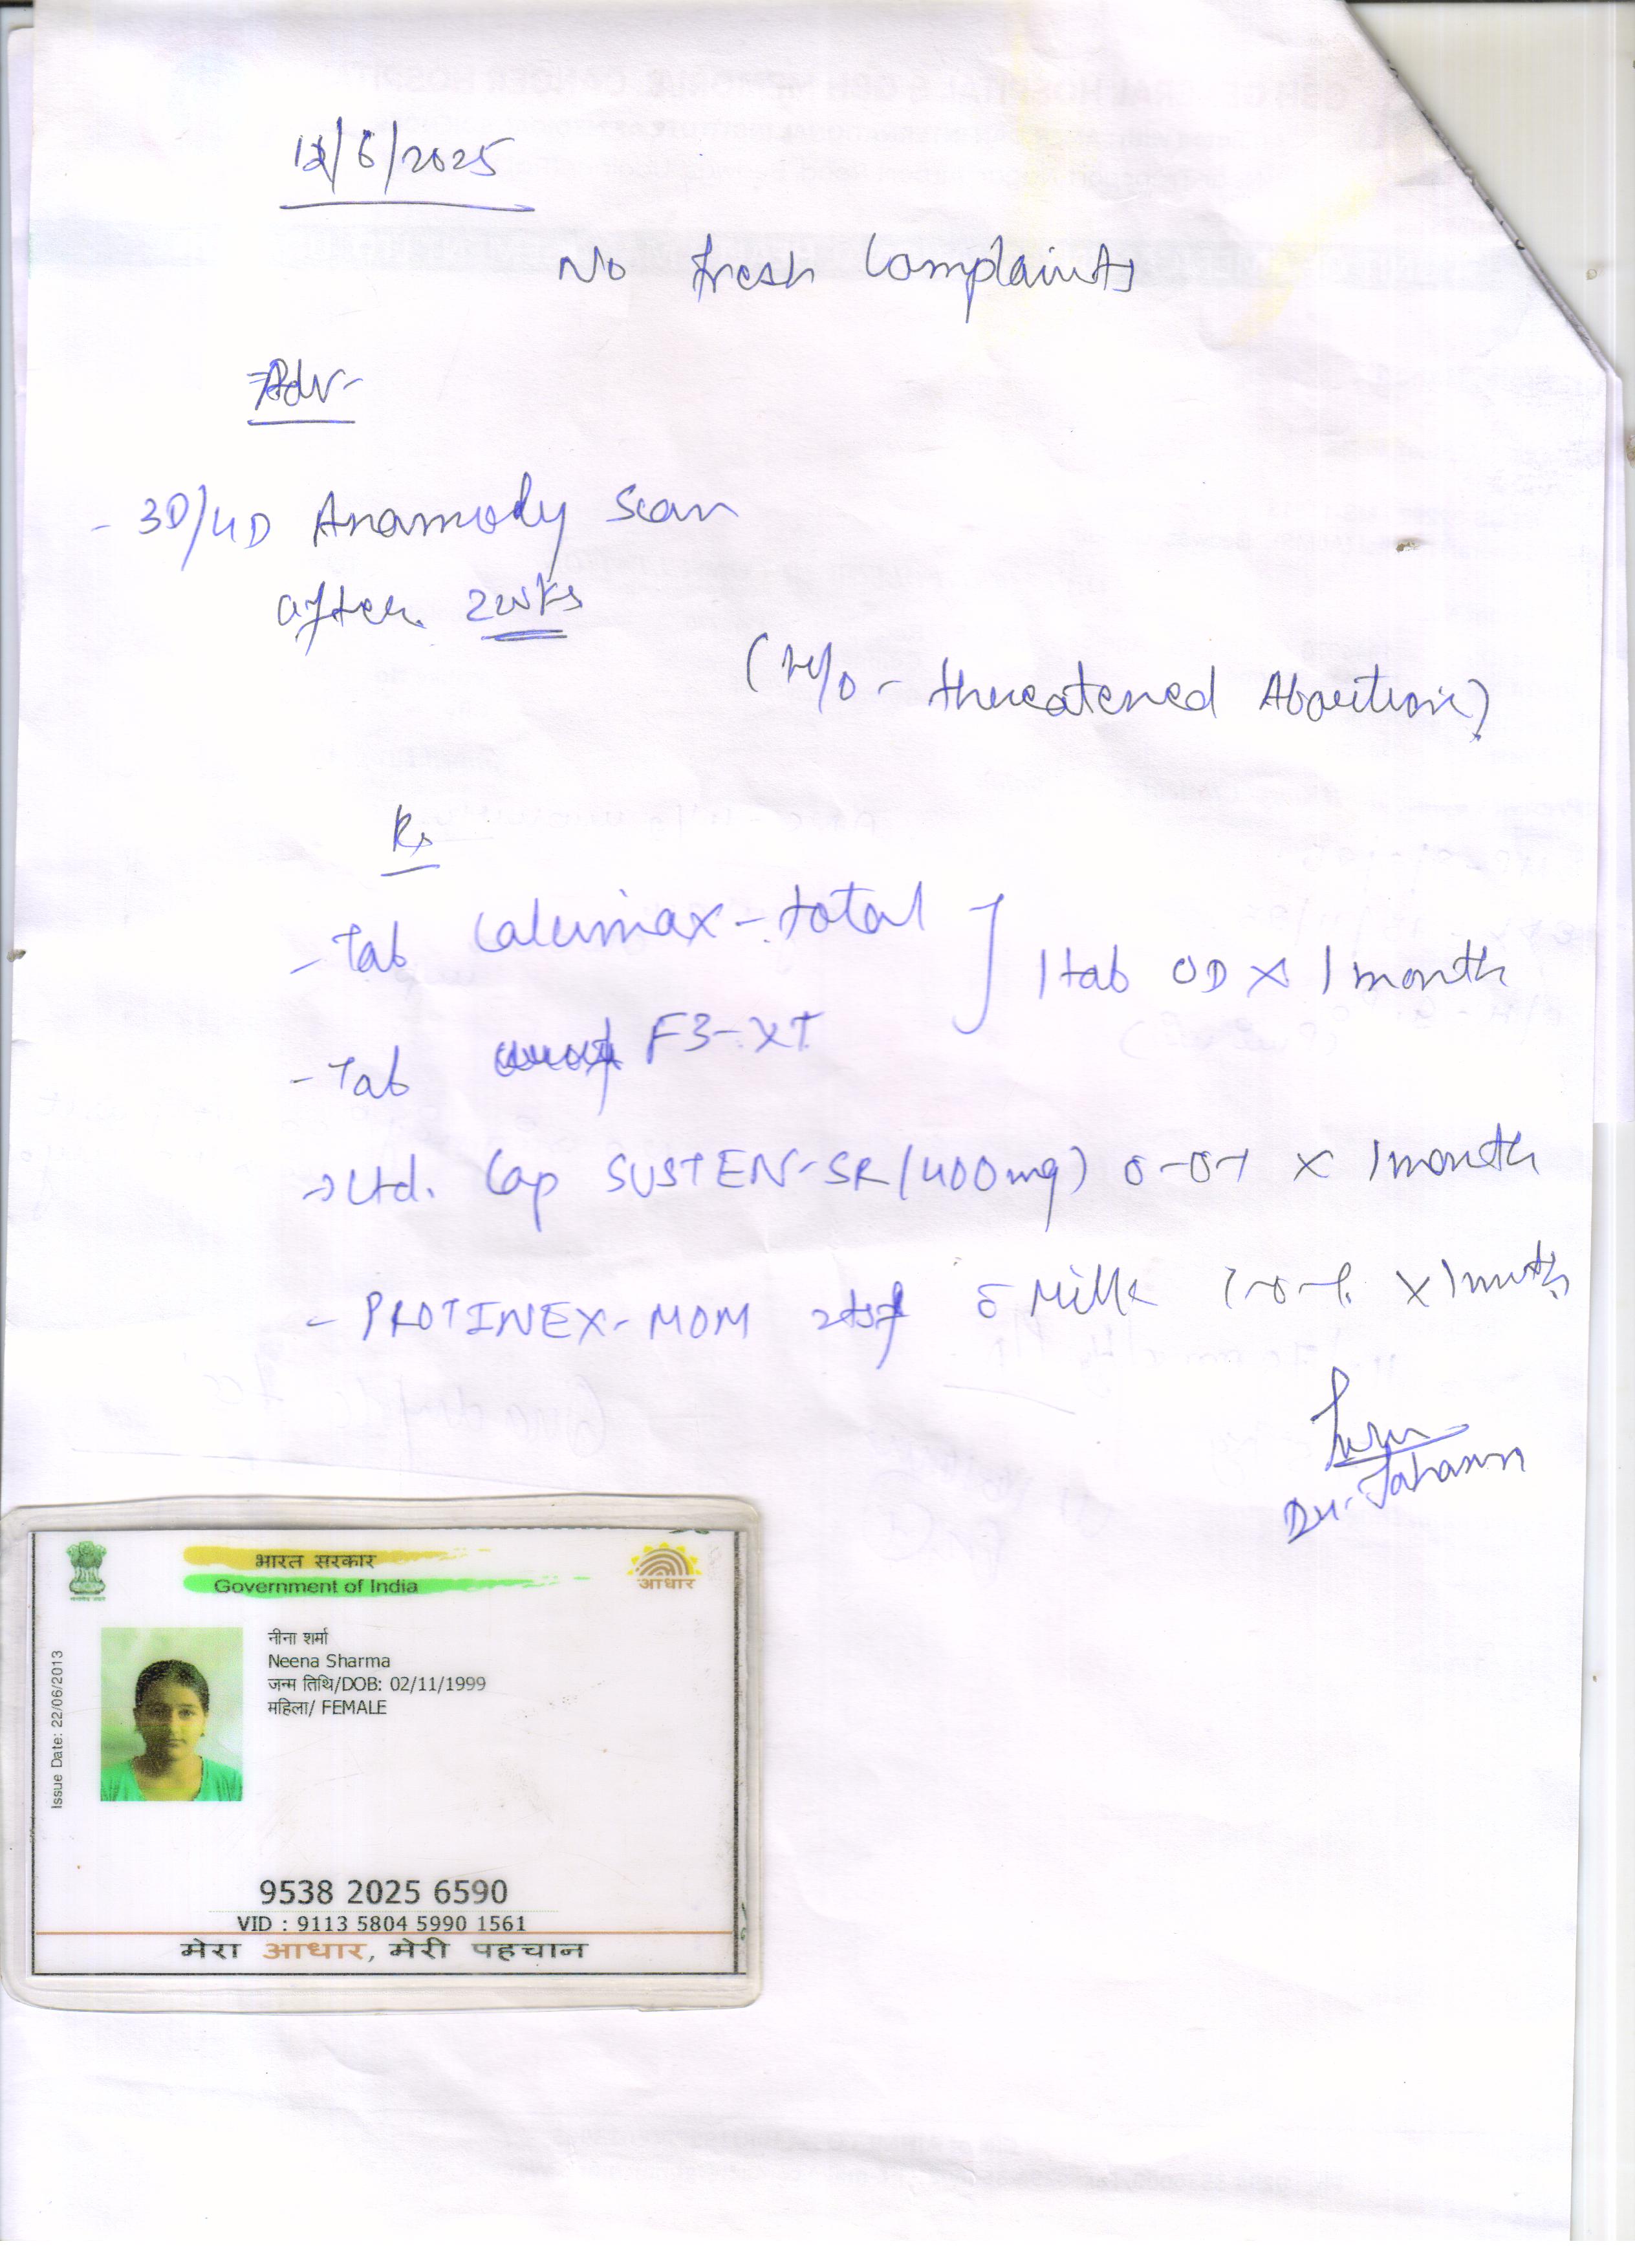 12/6/2025
No fresh Complaints
Adv-
- 3D/4D Anamoly scan
after 2wks
(H/o - threatened Abortion)
Rx
- Tab Calcimax-total
1tab OD x 1 month
- Tab F3-XT
→ Utd. Cap SUSTEN-SR (400mg) 0-0-1 x 1month
- PROTINEX-MOM 2tsf c̄ Milk 1-0-1 x 1month
Dr.
भारत सरकार
Government of India
आधार
Issue Date: 22/06/2013
नीना शर्मा
Neena Sharma
जन्म तिथि/DOB: 02/11/1999
महिला/ FEMALE
9538 2025 6590
VID : 9113 5804 5990 1561
मेरा आधार, मेरी पहचान